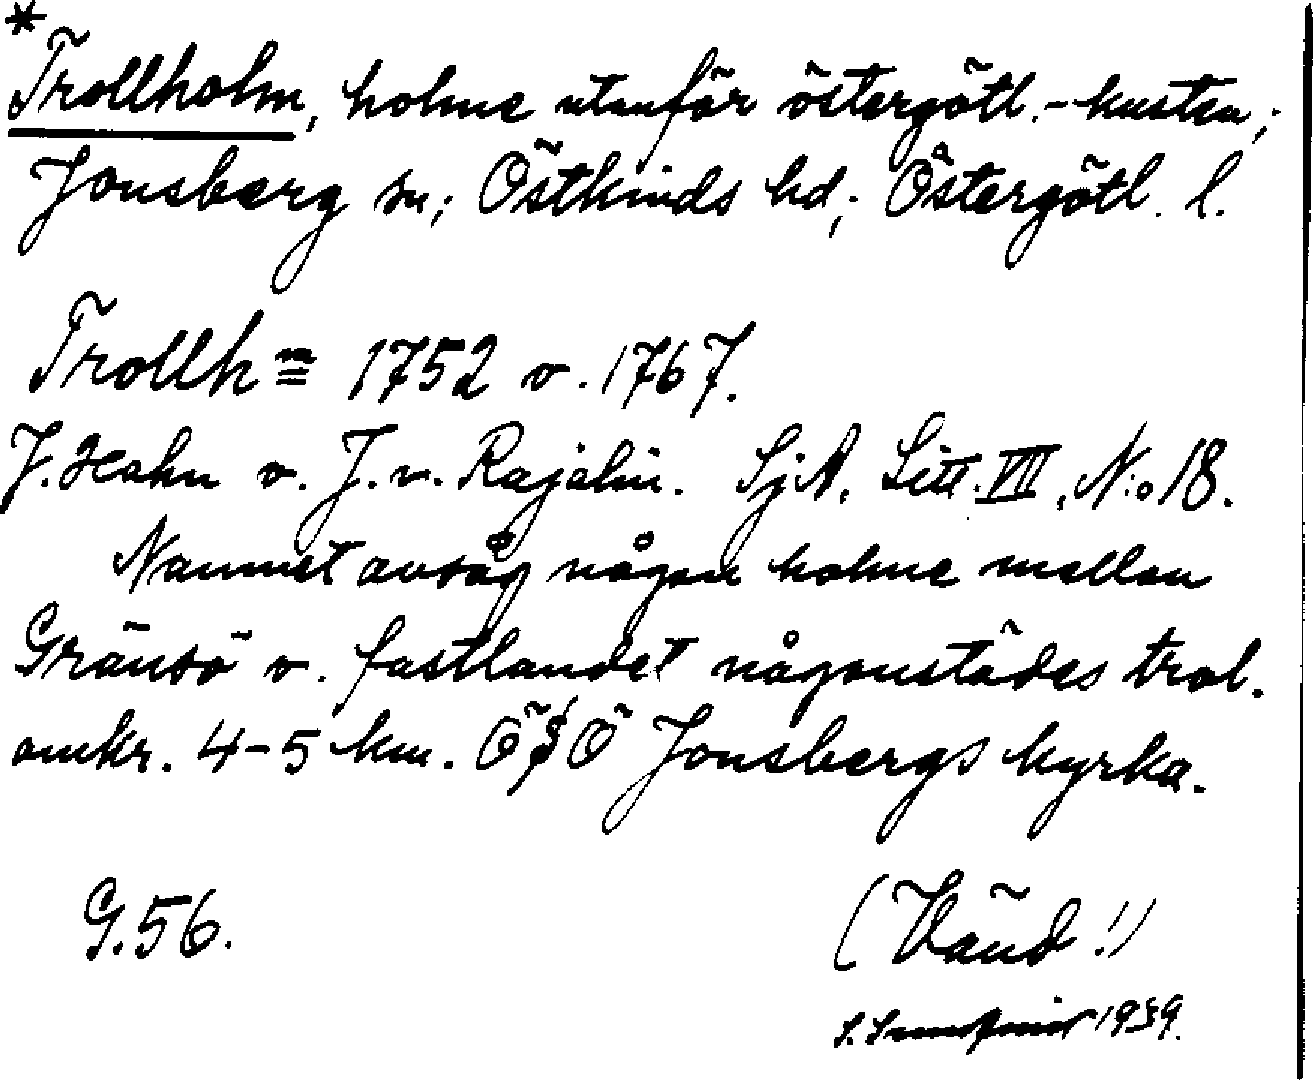 *
Trollholm, holme utanför östergötl.-kusten;
Jonsberg sn; Östkinds hd; Östergötl. l.
Trollhm 1752 o. 1767.
J. Hahn o. J. v. Rajalin. SjA. Litt. VII, N:o 18.
Namnet avsåg någon holme mellan
Gränsö o. fastlandet någonstädes trol.
omkr. 4-5 km. ÖSÖ Jonsbergs kyrka.
G. 56.
(Vänd!)
1939.